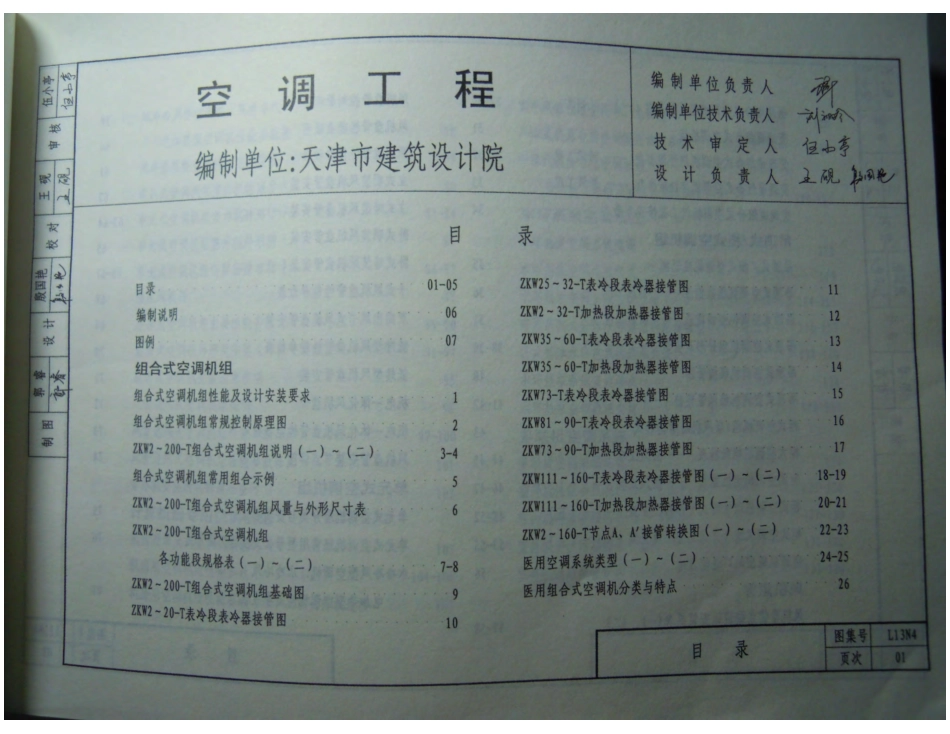 空调工程
编制单位:天津市建筑设计院
编制单位负责人
编制单位技术负责人
技术审定人 伍小亭
设计负责人 王砚 殷国艳
目录
目录 01-05
编制说明 06
图例 07
组合式空调机组
组合式空调机组性能及设计安装要求 1
组合式空调机组常规控制原理图 2
ZKW2~200-T组合式空调机组说明(一)~(二) 3-4
组合式空调机组常用组合示例 5
ZKW2~200-T组合式空调机组风量与外形尺寸表 6
ZKW2~200-T组合式空调机组
各功能段规格表(一)~(二) 7-8
ZKW2~200-T组合式空调机组基础图 9
ZKW2~20-T表冷段表冷器接管图 10
ZKW25~32-T表冷段表冷器接管图 11
ZKW2~32-T加热段加热器接管图 12
ZKW35~60-T表冷段表冷器接管图 13
ZKW35~60-T加热段加热器接管图 14
ZKW73-T表冷段表冷器接管图 15
ZKW81~90-T表冷段表冷器接管图 16
ZKW73~90-T加热段加热器接管图 17
ZKW111~160-T表冷段表冷器接管图(一)~(二) 18-19
ZKW111~160-T加热段加热器接管图(一)~(二) 20-21
ZKW2~160-T节点A、A'接管转换图(一)~(二) 22-23
医用空调系统类型(一)~(二) 24-25
医用组合式空调机分类与特点 26
审核 伍小亭 伍小亭
校对 王砚 王砚
设计
制图
目录
图集号 L13N4
页次 01